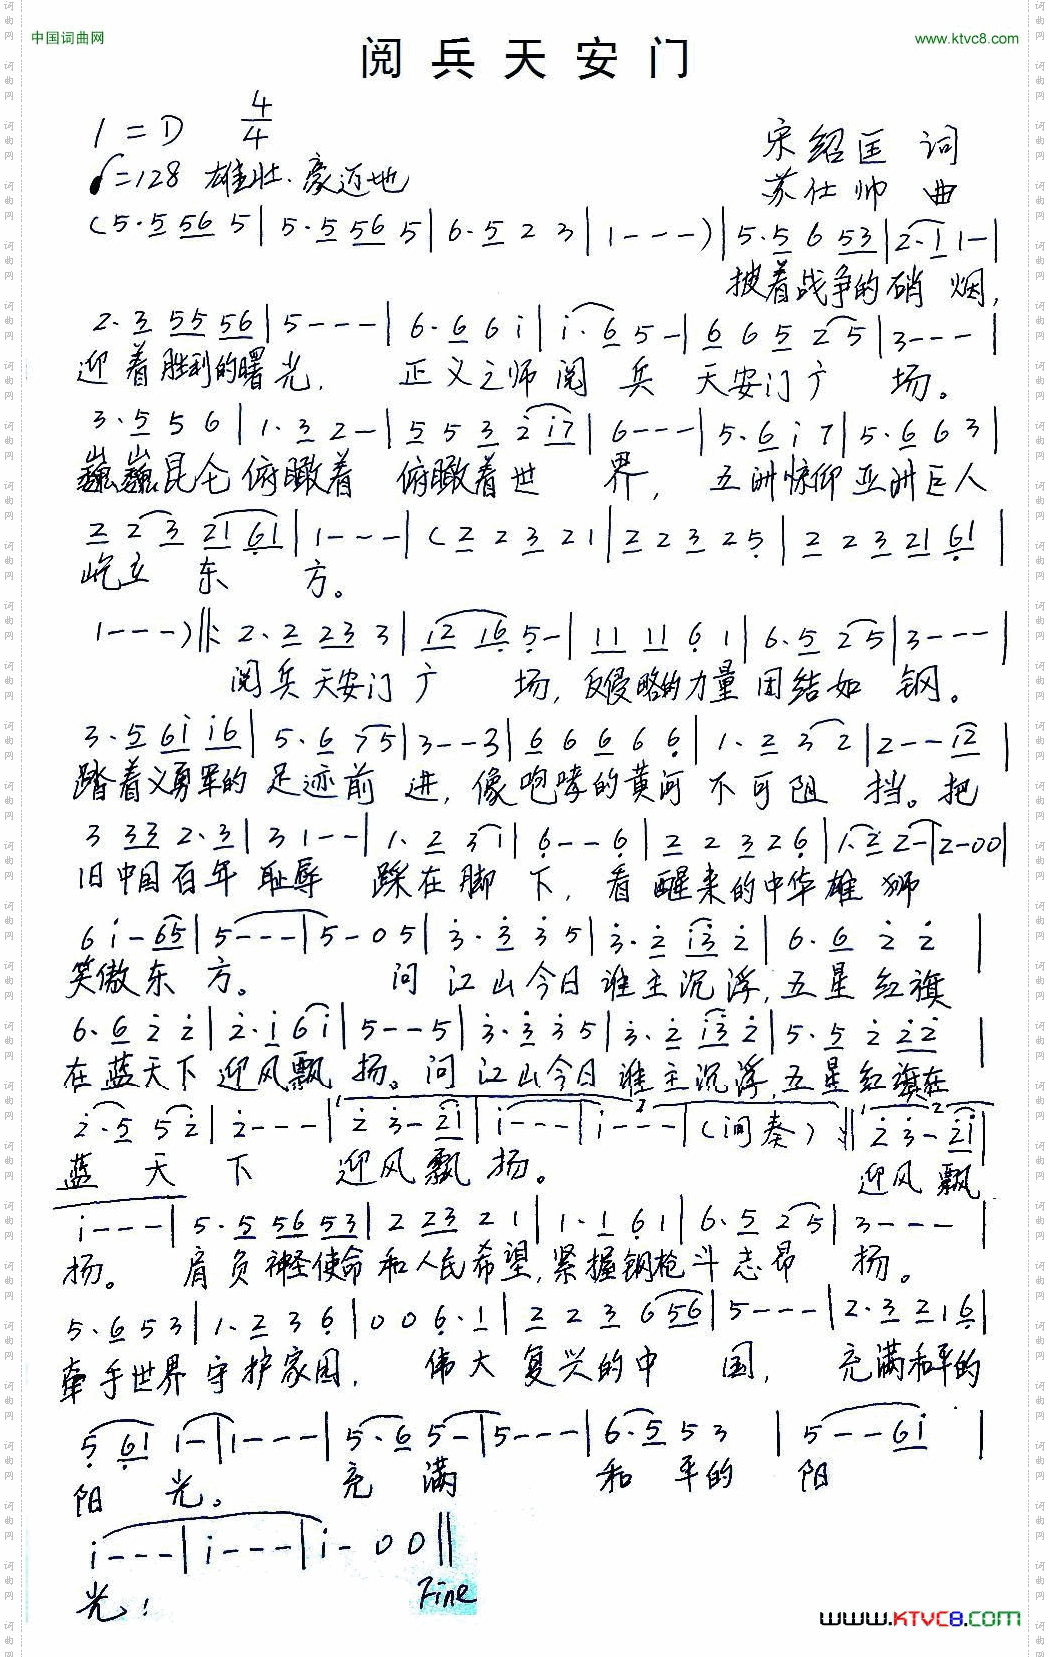 中国词曲网
www.ktvc8.com
阅兵天安门
1=D 4/4
宋绍匡 词
♩=128 雄壮.豪迈地
苏仕帅 曲
(5·5 56 5|5·5 56 5|6·5 2 3|1---)|5·5 6 53|2·1 1-|
披着战争的硝烟,
2·3 55 56|5---|6·6 6 i|i·6 5-|6 6 5 2 5|3---|
迎着胜利的曙光. 正义之师阅兵天安门广场。
3·5 5 6|1·3 2-|5 5 3 2 i7|6---|5·6 i 7|5·6 6 3|
巍巍昆仑俯瞰着 俯瞰着世界, 五洲惊仰亚洲巨人
2 2 3 21 61|1---|(2 2 3 21|2 2 3 2 5|2 2 3 21 61|
屹立东方。
1---)‖: 2·2 23 3|12 16 5-|11 11 6 1|6·5 2 5|3---|
阅兵天安门广场, 反侵略的力量团结如钢。
3·5 6i i6|5·6 7 5|3--3|6 6 6 6 6|1·2 3 2|2--12|
踏着义勇军的足迹前进, 像咆哮的黄河不可阻挡。把
3 33 2·3|3 1--|1·2 3 1|6--6|2 2 3 2 6|1·2 2-|2-00|
旧中国百年耻辱 踩在脚下, 看醒来的中华雄狮
6 i-65|5---|5-0 5|3·3 3 5|3·2 i3 2|6·6 2 2|
笑傲东方。 问江山今日谁主沉浮, 五星红旗
6·6 2 2|2·i 6 i|5--5|3·3 3 5|3·2 i3 2|5·5 2 22|
在蓝天下迎风飘扬。问江山今日谁主沉浮, 五星红旗在
2·5 5 2|2---|1 2 3-2i|i---|2 i---|(间奏):‖1 2 2 3-2i|
蓝天下 迎风飘扬。 迎风飘
i---|5·5 56 53|2 23 2 1|1·1 6 1|6·5 2 5|3---|
扬。 肩负神圣使命和人民希望, 紧握钢枪斗志昂扬。
5·6 5 3|1·2 3 6|0 0 6·1|2 2 3 6 56|5---|2·3 2 1 6|
牵手世界守护家园, 伟大复兴的中国, 充满和平的
5 61 1-|1---|5·6 5-|5---|6·5 5 3|5--6i|
阳光。 充满 和平的阳
i---|i---|i-00‖
光! Fine
www.KTVC8.com